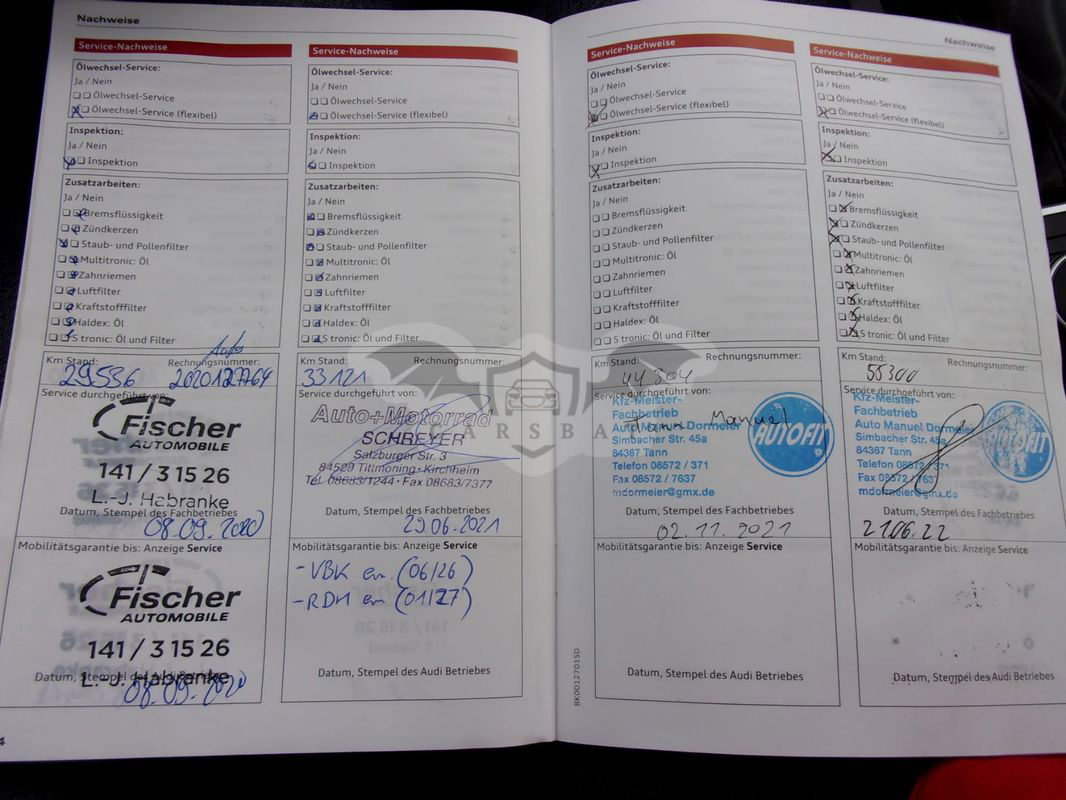 Nachweise
Service-Nachweise
Ölwechsel-Service:
Ja / Nein
Ölwechsel-Service
Ölwechsel-Service (flexibel)
Inspektion:
Ja / Nein
Inspektion
Zusatzarbeiten:
Ja / Nein
Bremsflüssigkeit
Zündkerzen
Staub- und Pollenfilter
Multitronic: Öl
Zahnriemen
Luftfilter
Kraftstofffilter
Haldex: Öl
S tronic: Öl und Filter
Km Stand:
Rechnungsnummer:
29536
Service durchgeführt von:
Fischer
AUTOMOBILE
141 / 3 15 26
L.-J. Habranke
Datum, Stempel des Fachbetriebes
08.09.2020
Mobilitätsgarantie bis: Anzeige Service
Fischer
AUTOMOBILE
141 / 3 15 26
L.-J. Habranke
Datum, Stempel des Audi Betriebes
08.09.2020
4
Service-Nachweise
Ölwechsel-Service:
Ja / Nein
Ölwechsel-Service
Ölwechsel-Service (flexibel)
Inspektion:
Ja / Nein
Inspektion
Zusatzarbeiten:
Ja / Nein
Bremsflüssigkeit
Zündkerzen
Staub- und Pollenfilter
Multitronic: Öl
Zahnriemen
Luftfilter
Kraftstofffilter
Haldex: Öl
S tronic: Öl und Filter
Km Stand:
Rechnungsnummer:
33121
Service durchgeführt von:
Auto+Motorrad
SCHREYER
Salzburger Str. 3
84529 Tittmoning-Kirchheim
Tel. 08683/1244 · Fax 08683/7377
Datum, Stempel des Fachbetriebes
29.06.2021
Mobilitätsgarantie bis: Anzeige Service
- VBK en. (06/26)
- RDM en (01/27)
Datum, Stempel des Audi Betriebes
Service-Nachweise
Ölwechsel-Service:
Ja / Nein
Ölwechsel-Service
Ölwechsel-Service (flexibel)
Inspektion:
Ja / Nein
Inspektion
Zusatzarbeiten:
Ja / Nein
Bremsflüssigkeit
Zündkerzen
Staub- und Pollenfilter
Multitronic: Öl
Zahnriemen
Luftfilter
Kraftstofffilter
Haldex: Öl
S tronic: Öl und Filter
Km Stand:
Rechnungsnummer:
44304
Service durchgeführt von:
Kfz-Meister-
Fachbetrieb
Auto Manuel Dormeier
Simbacher Str. 45a
84367 Tann
Telefon 08572 / 371
Fax 08572 / 7637
mdormeier@gmx.de
AUTOFIT
Manuel
Datum, Stempel des Fachbetriebes
02.11.2021
Mobilitätsgarantie bis: Anzeige Service
Datum, Stempel des Audi Betriebes
8K0012701SD
Nachweise
Service-Nachweise
Ölwechsel-Service:
Ja / Nein
Ölwechsel-Service
Ölwechsel-Service (flexibel)
Inspektion:
Ja / Nein
Inspektion
Zusatzarbeiten:
Ja / Nein
Bremsflüssigkeit
Zündkerzen
Staub- und Pollenfilter
Multitronic: Öl
Zahnriemen
Luftfilter
Kraftstofffilter
Haldex: Öl
S tronic: Öl und Filter
Km Stand:
Rechnungsnummer:
55300
Service durchgeführt von:
Kfz-Meister-
Fachbetrieb
Auto Manuel Dormeier
Simbacher Str. 45a
84367 Tann
Telefon 08572 / 371
Fax 08572 / 7637
mdormeier@gmx.de
AUTOFIT
Datum, Stempel des Fachbetriebes
21.06.22
Mobilitätsgarantie bis: Anzeige Service
Datum, Stempel des Audi Betriebes